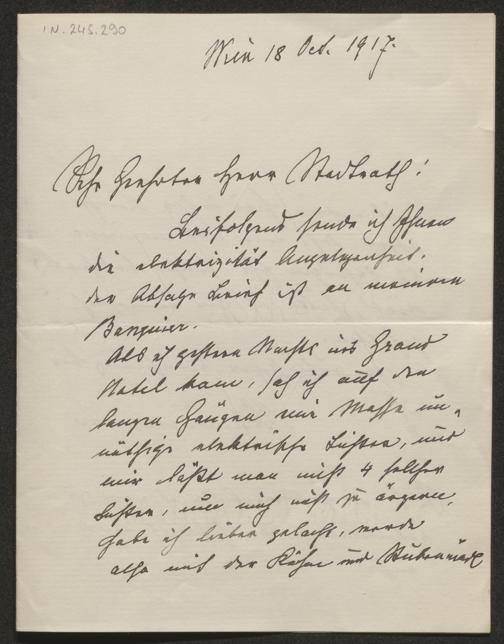 IN. 245.290
Wien 18 Oct. 1917.
Sehr Geehrter Herr Stadtrath!
Beifolgend sende ich Ihnen
die elektrizität Angelegenheit.
der Absage Brief ist an meinen
Banquier.
Als ich gestern Nachts ins Grand
Hotel kam, sah ich auf den
langen Gängen eine Masse un-
nöthige elektrische Lichter, und
mir läßt man nicht 4 solcher
Lichter, um mich nicht zu ärgern,
habe ich lieber gelacht, werde
also mit der Köchin und Stubenmädl